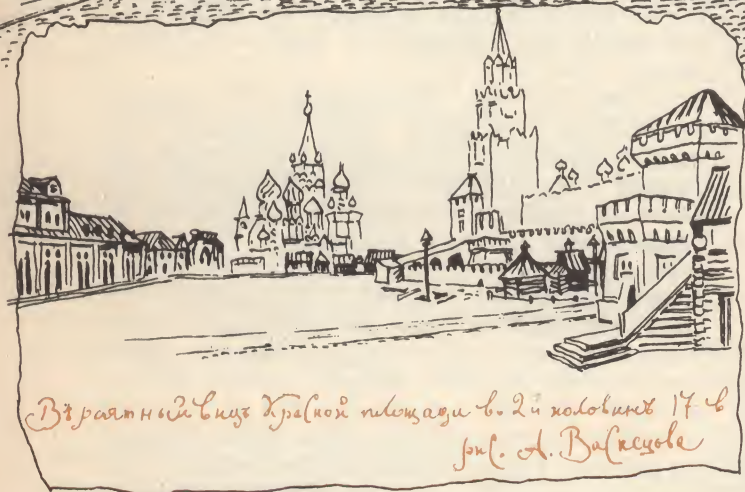 Вѣроятный видъ Красной площади в. 2й половинѣ 17 в
рис. А. Васнецова